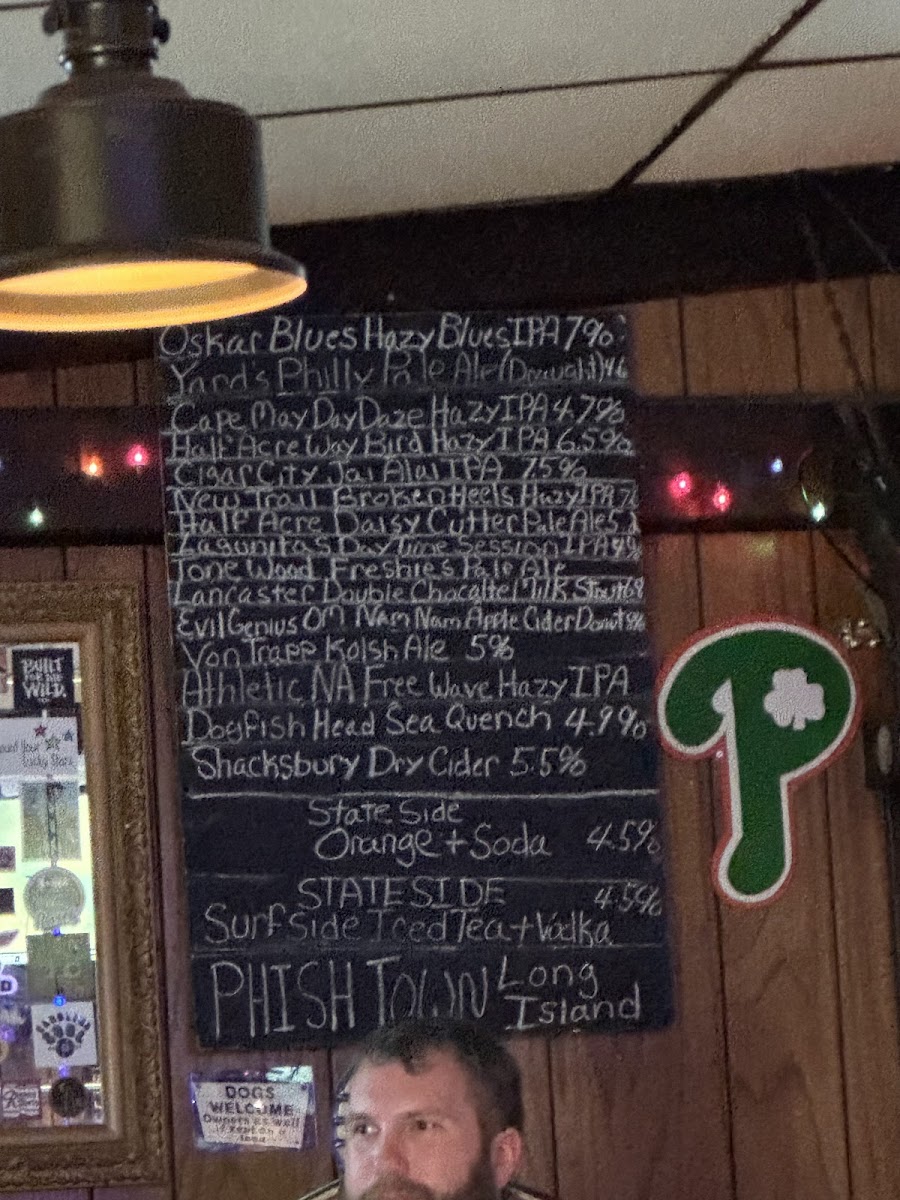 Oskar Blues Hazy Blues IPA 7%
Yard's Philly Pale Ale (Draught) 4.6
Cape May Day Daze Hazy IPA 4.7%
Half Acre Way Bird Hazy IPA 6.5%
Cigar City Jai Alai IPA 7.5%
New Trail Broken Heels Hazy IPA 7
Half Acre Daisy Cutter Pale Ale 5.2
Lagunitas Day time Session IPA 4%
Tone Wood Freshies Pale Ale
Lancaster Double Chocalte Milk Stout 6.8
Evil Genius OM Nam Nam Apple Cider Donut 8%
Von Trapp Kolsh Ale 5%
Athletic NA Free Wave Hazy IPA
Dogfish Head Sea Quench 4.9%
Shacksbury Dry Cider 5.5%
State Side
Orange + Soda 4.5%
STATESIDE 4.5%
Surfside Iced Tea + Vodka
PHISH TOWN Long
Island
BUILT
FOR THE
WILD.
Count Your
Lucky Stars
P
DOGS
WELCOME
Owners as well
if kept on a
leash